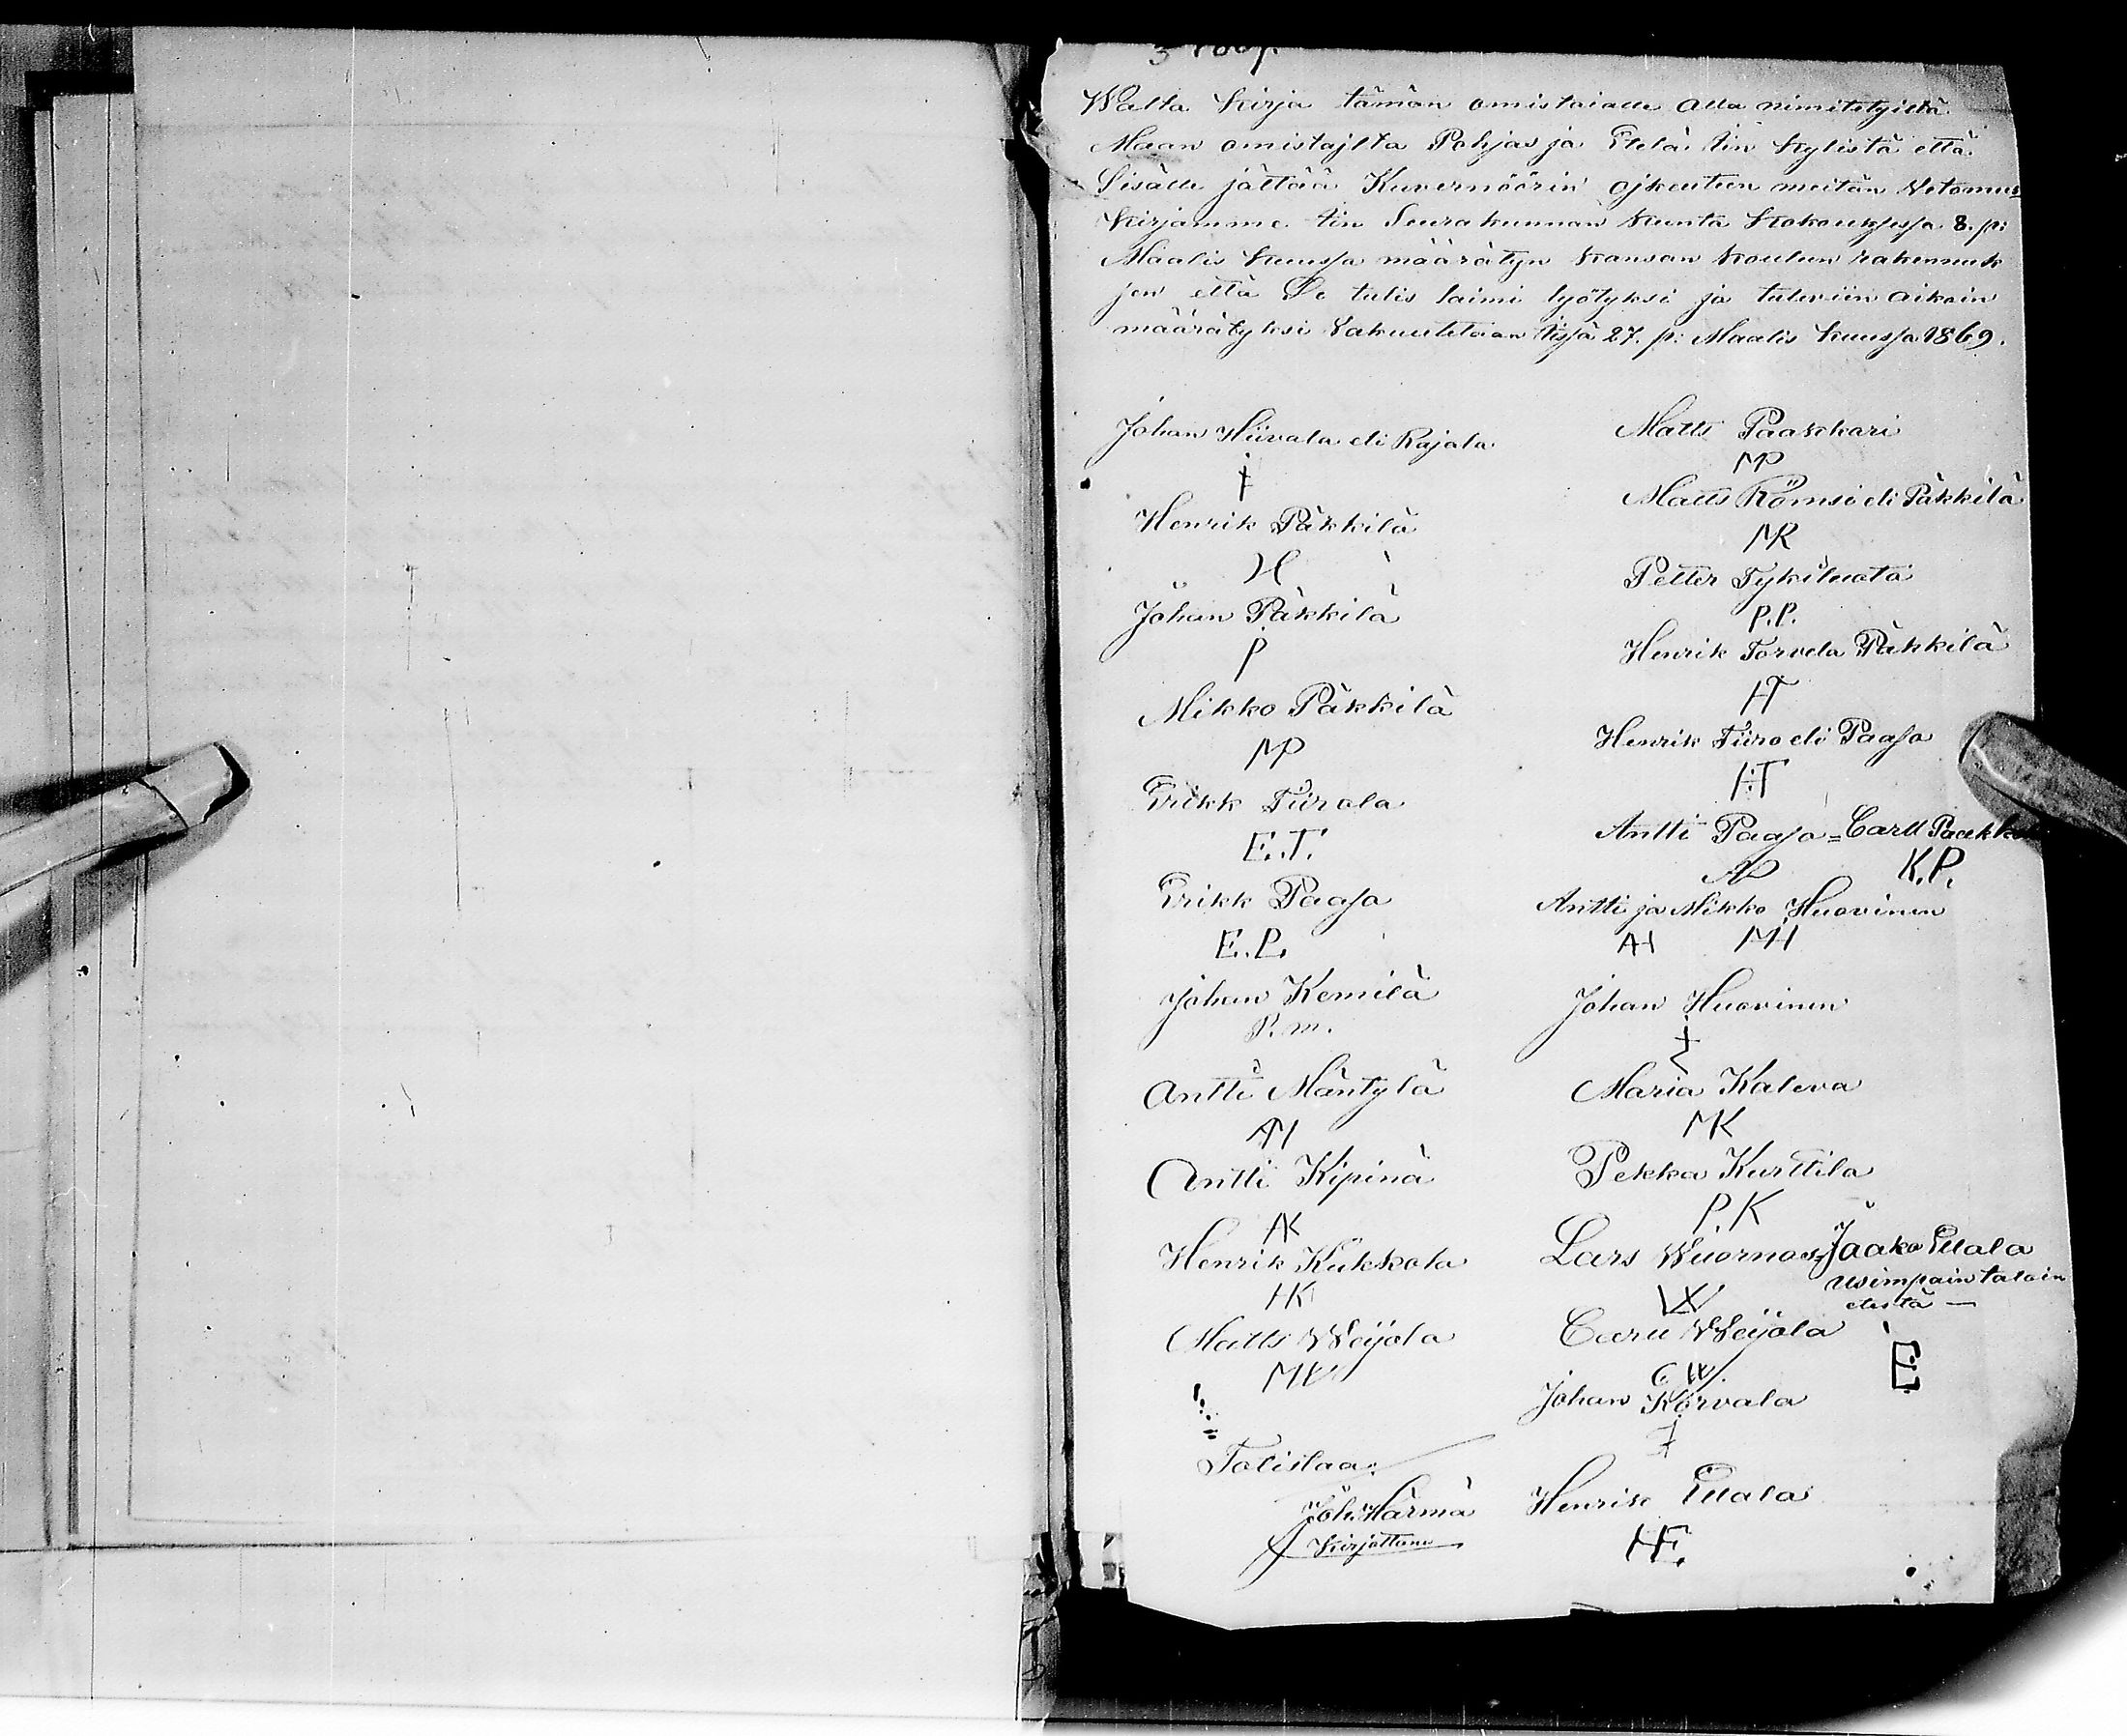 Walta kirja tämän omistaialle alla nimitetyiltä
Maan omistajlta Pohjas ja Etelä Iin kylistä että
Sisälle jättää Kuvernöörin ojkeuteen meitän Wetomus-
kirjamme Iin Seurakunnan kunta kokouksessa 8. p:
Maalis kuussa määrätyn kansan koulun rakennuk
sen että Se tulis laimi lyötyksi ja tuleviin aikoin
määrätyksi Vakuutetaan Iissä 27. p: Maalis kuussa 1869.
Johan Hiivala eli Rajala
Henrik Päkkilä
H
Johan Päkkilä
P
Mikko Päkkilä
MP
Erikk Tiirola
E.T.
Erikk Paaso
E.P.
Johan Kemilä
P.m.
Antti Mäntylä
AM
Antti Kipinä
AK
Henrik Kukkola
HK
Matts Weijola
MW
Totistaa:
Joh. Härmä
kirjottana
Matts Paakkari
MP
Matts Römsi eli Päkkilä
MR
Petter Tykiluota
P.P.
Henrik Torvela Päkkilä
HT
Henrik Tiiro eli Paaso
HT
Antti Paaso = Carll
AP K.P.
Antti ja Mikko Huovinen
AH MH
Johan Huovinen
Maria Kaleva
MK
Pekka Kurttila
P.K
Lars Wuornos Jaako Ellala
usimpain taloin
etestä —
LW
Carll Weijola
E
C W.
Johan Korvala
Henrik Ellala
HE.